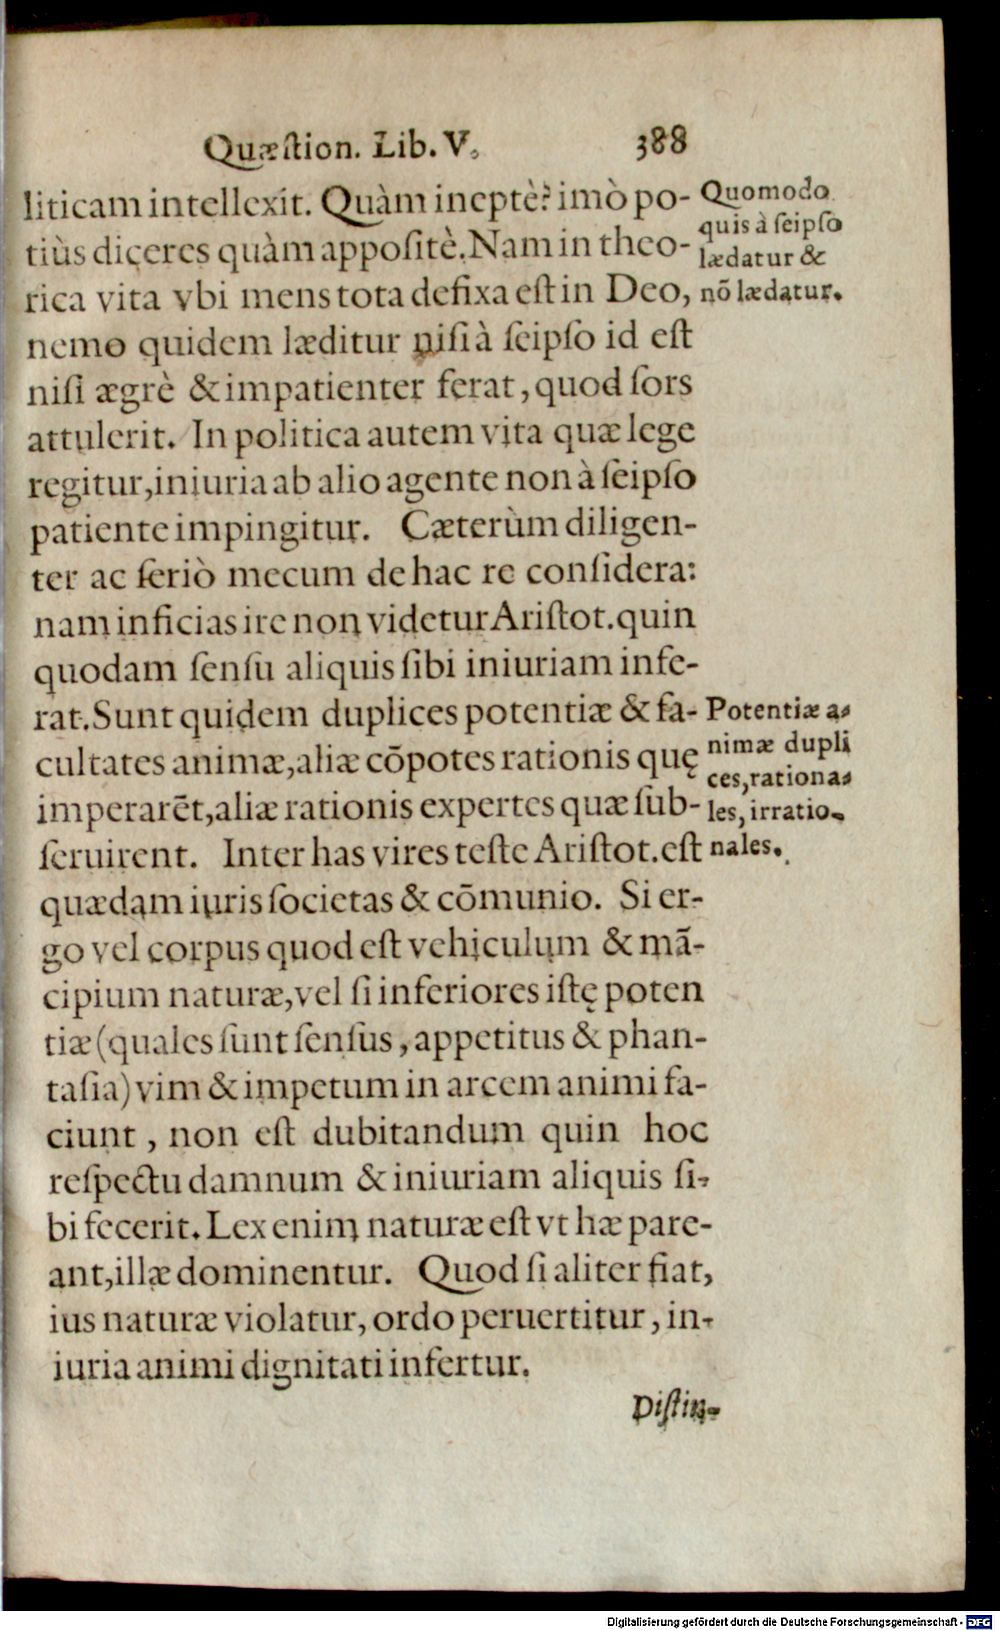 Quæstion. Lib. V. 388
liticam intellexit. Quàm ineptè? imò po-
tiùs diceres quàm appositè. Nam in theo-
rica vita vbi mens tota defixa est in Deo,
nemo quidem læditur nisi à seipso id est
nisi ægrè & impatienter ferat, quod sors
attulerit. In politica autem vita quæ lege
regitur, iniuria ab alio agente non à seipso
patiente impingitur. Cæterùm diligen-
ter ac seriò mecum de hac re considera:
nam inficias ire non videtur Aristot. quin
quodam sensu aliquis sibi iniuriam infe-
rat. Sunt quidem duplices potentiæ & fa-
cultates animæ, aliæ cõpotes rationis quę
imperarẽt, aliæ rationis expertes quæ sub-
seruirent. Inter has vires teste Aristot. est
quædam iuris societas & cõmunio. Si er-
go vel corpus quod est vehiculum & mã-
cipium naturæ, vel si inferiores istę poten
tiæ (quales sunt sensus, appetitus & phan-
tasia) vim & impetum in arcem animi fa-
ciunt, non est dubitandum quin hoc
respectu damnum & iniuriam aliquis si-
bi fecerit. Lex enim naturæ est vt hæ pare-
ant, illæ dominentur. Quod si aliter fiat,
ius naturæ violatur, ordo peruertitur, in-
iuria animi dignitati infertur.
Distin-
Quomodo
quis à seipso
lædatur &
nõ lædatur.
Potentiæ a-
nimæ dupli
ces, rationa-
les, irratio-
nales.
Digitalisierung gefördert durch die Deutsche Forschungsgemeinschaft - DFG